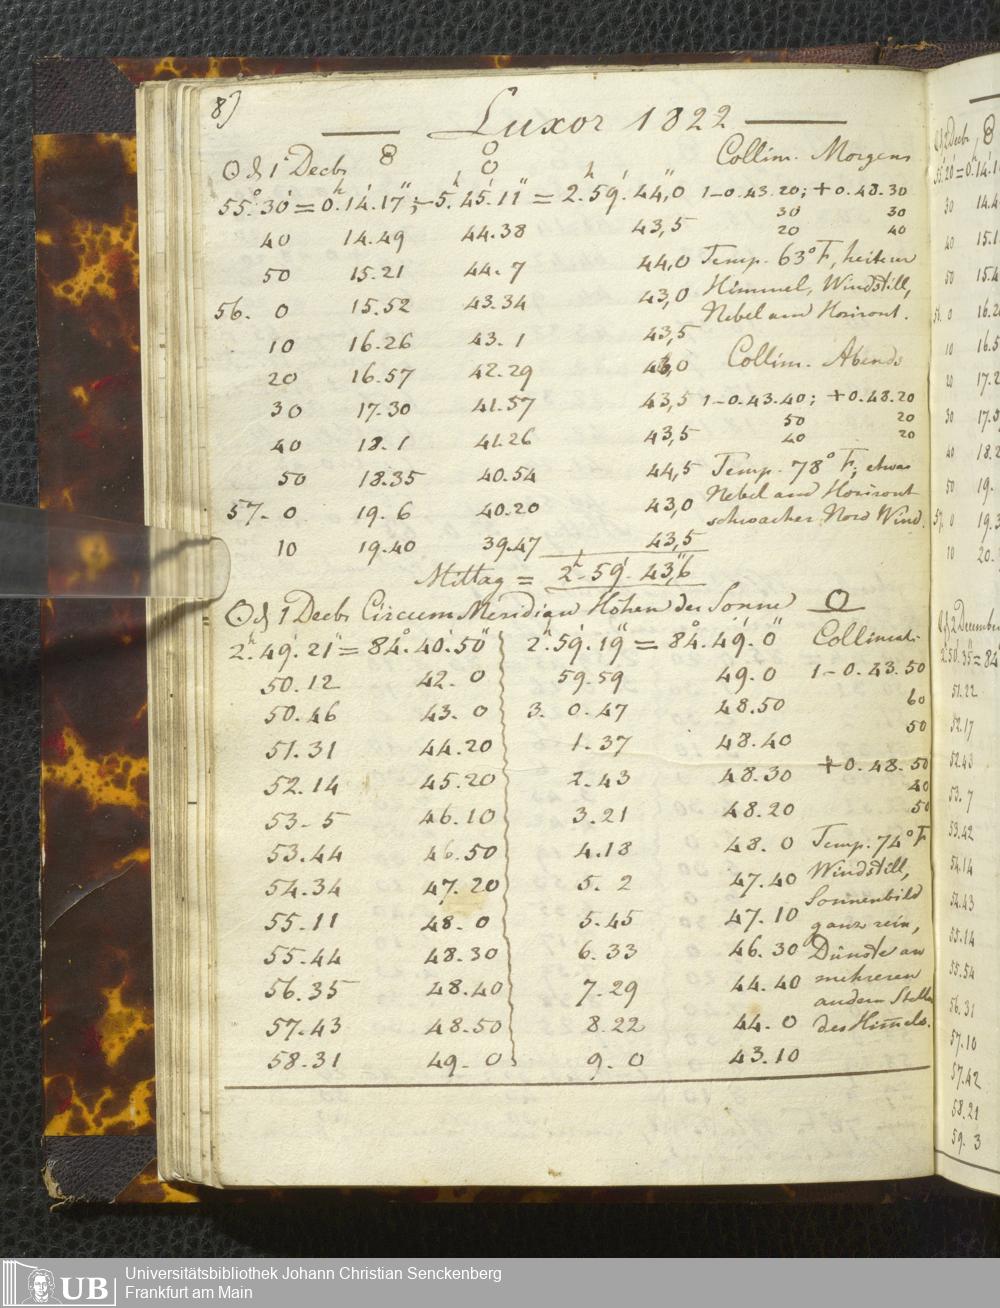 8)
Luxor 1822
Collim. Morgens
1 Decbr
55°.30' = 0h.14'.17"; -5h.45'.11" = 2h.59'.44",0 1-0.43.20; +0.48.30
30 30
40 14.49 44.38 43,5 20 40
50 15.21 44.7 44,0 Temp. 63°F, heiterer
56. 0 15.52 43.34 43,0 Himmel, Windstill,
Nebel am Horizont.
10 16.26 43.1 43,5
20 16.57 42.29 43,0 Collim. Abends
30 17.30 41.57 43,5 1-0.43.40; +0.48.20
50 20
40 18.1 41.26 43,5 40 20
50 18.35 40.54 44,5 Temp. 78°F, etwas
57. 0 19.6 40.20 43,0 Nebel am Horizont
schwacher Nord Wind.
10 19.40 39.47 43,5
Mittag = 2h.59'.43,"6
1 Decbr Circum Meridian Höhen der Sonne
2h.49'.21" = 84°.40'.50" 2h.59'.19" = 84°.49'.0" Collimat.
50.12 42.0 59.59 49.0 1-0.43.50
50.46 43.0 3. 0.47 48.50 60
50
51.31 44.20 1.37 48.40
52.14 45.20 2.43 48.30 +0.48.50
40
53.5 46.10 3.21 48.20 50
53.44 46.50 4.18 48.0 Temp. 74°F
54.34 47.20 5.2 47.40 Windstill,
Sonnenbild
55.11 48.0 5.45 47.10 ganz rein,
55.44 48.30 6.33 46.30 Dünste an
56.35 48.40 7.29 44.40 mehreren
andern Stellen
57.43 48.50 8.22 44.0 des Him̄els.
58.31 49.0 9.0 43.10
2 Decbr
30
40
50
10
20
30
40
50
10
2 December
51.22
52.17
52.43
53.7
53.42
54.14
54.43
55.14
55.54
56.31
57.10
57.42
58.21
59.3
UB Universitätsbibliothek Johann Christian Senckenberg
Frankfurt am Main